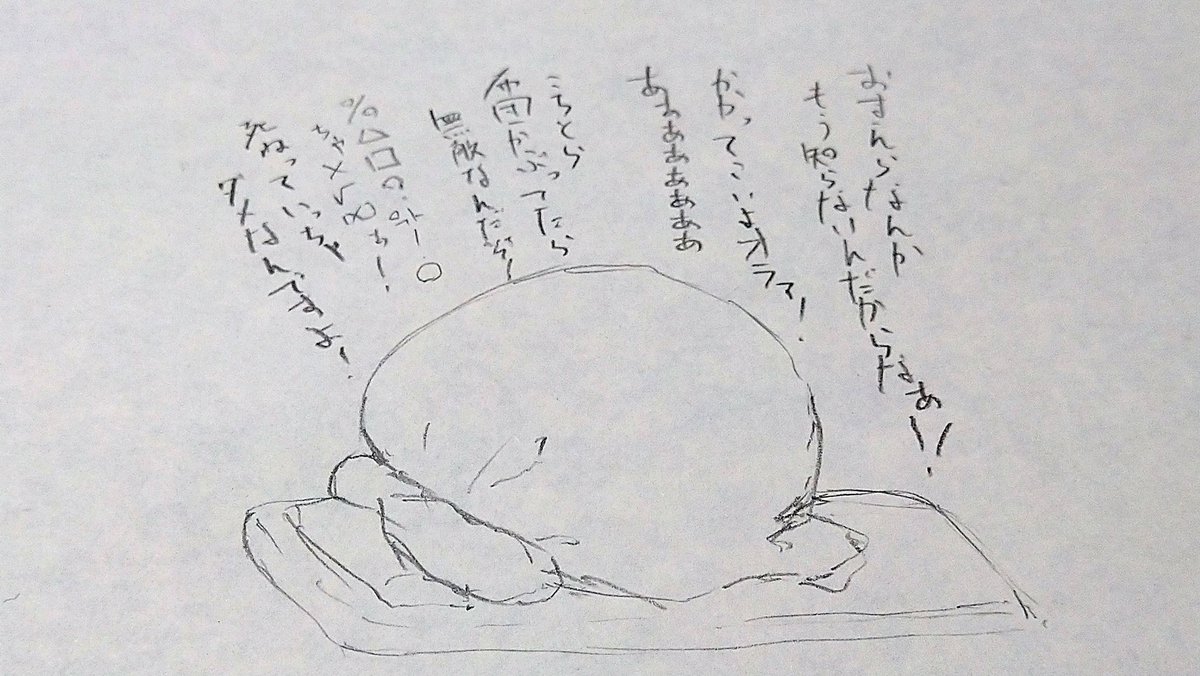 おまえらなんか
もう知らないんだからなあ!!
かかってこいよオラァ!
あああああああ
こちとら
布団かぶってたら
無敵なんだぞ!
%△□の
ちゃ×√∞ぉ!
死ねっていっちゃ
ダメなんですよ!